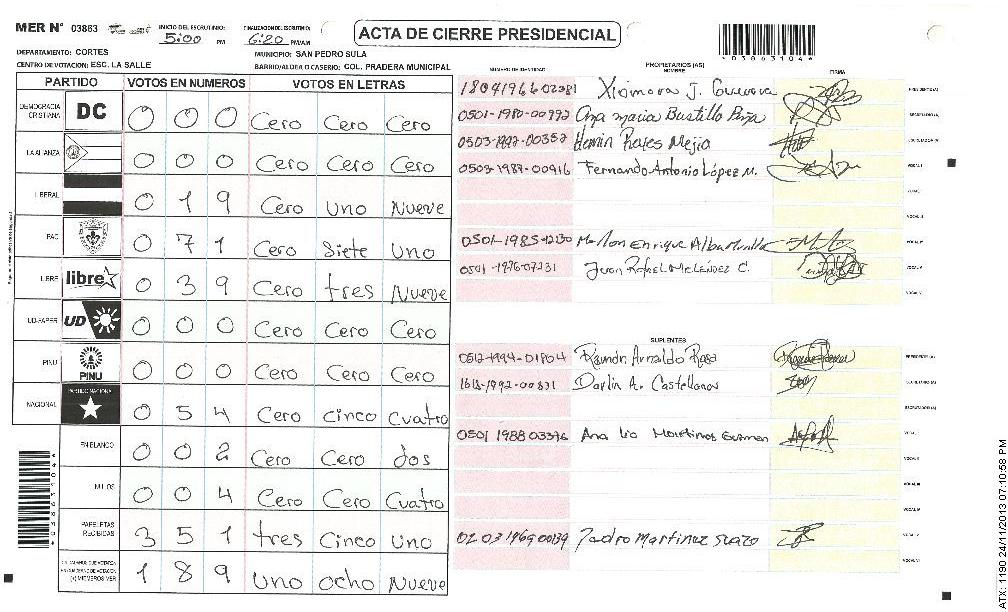 MER N° 03863
INICIO DEL ESCRUTINIO: 5:00 PM
FINALIZACION DEL ESCRUTINIO: 6:20 PM/AM
ACTA DE CIERRE PRESIDENCIAL
DEPARTAMENTO: CORTES
MUNICIPIO: SAN PEDRO SULA
CENTRO DE VOTACION: ESC. LA SALLE
BARRIO/ALDEA O CASERIO: COL. PRADERA MUNICIPAL
*03863104*
PARTIDO VOTOS EN NUMEROS VOTOS EN LETRAS
DEMOCRACIA CRISTIANA DC 0 0 0 Cero Cero Cero
LA ALIANZA 0 0 0 Cero Cero Cero
LIBERAL 0 1 9 Cero Uno Nueve
PAC 0 7 1 Cero Siete Uno
LIBRE libre 0 3 9 Cero tres Nueve
UD-FAPER UD 0 0 0 Cero Cero Cero
PINU PINU 0 0 0 Cero Cero Cero
NACIONAL PARTIDO NACIONAL 0 5 4 Cero Cinco Cuatro
EN BLANCO 0 0 2 Cero Cero dos
NULOS 0 0 4 Cero Cero Cuatro
PAPELETAS RECIBIDAS 3 5 1 tres Cinco Uno
(+) MIEMBROS MER 1 8 9 Uno ocho Nueve
*03863104*
NUMERO DE IDENTIDAD PROPIETARIOS (AS) NOMBRE FIRMA
1804196602381 Xiomara J. PRESIDENTE(A)
0501-1980-00992 Ana Maria Bustillo SECRETARIO(A)
0503-1992-00352 Mejia ESCRUTADOR(A)
0503-1989-00916 Fernando Antonio López M. VOCAL I
VOCAL II
0501-1985-12130 Marlon Enrique
0501-1976-07231 Juan Rafael Meléndez C.
SUPLENTES
0512-1994-01804 Ramón Arnaldo Rosa PRESIDENTE(A)
1618-1992-00831 Darlin A. Castellanos SECRETARIO(A)
ESCRUTADOR(A)
0501 1988 03396 Ana VOCAL I
VOCAL II
VOCAL III
VOCAL IV
0203196900139 Pedro Martinez VOCAL V
VOCAL VI
ATX: 1190 24/11/2013 07:10:58 PM